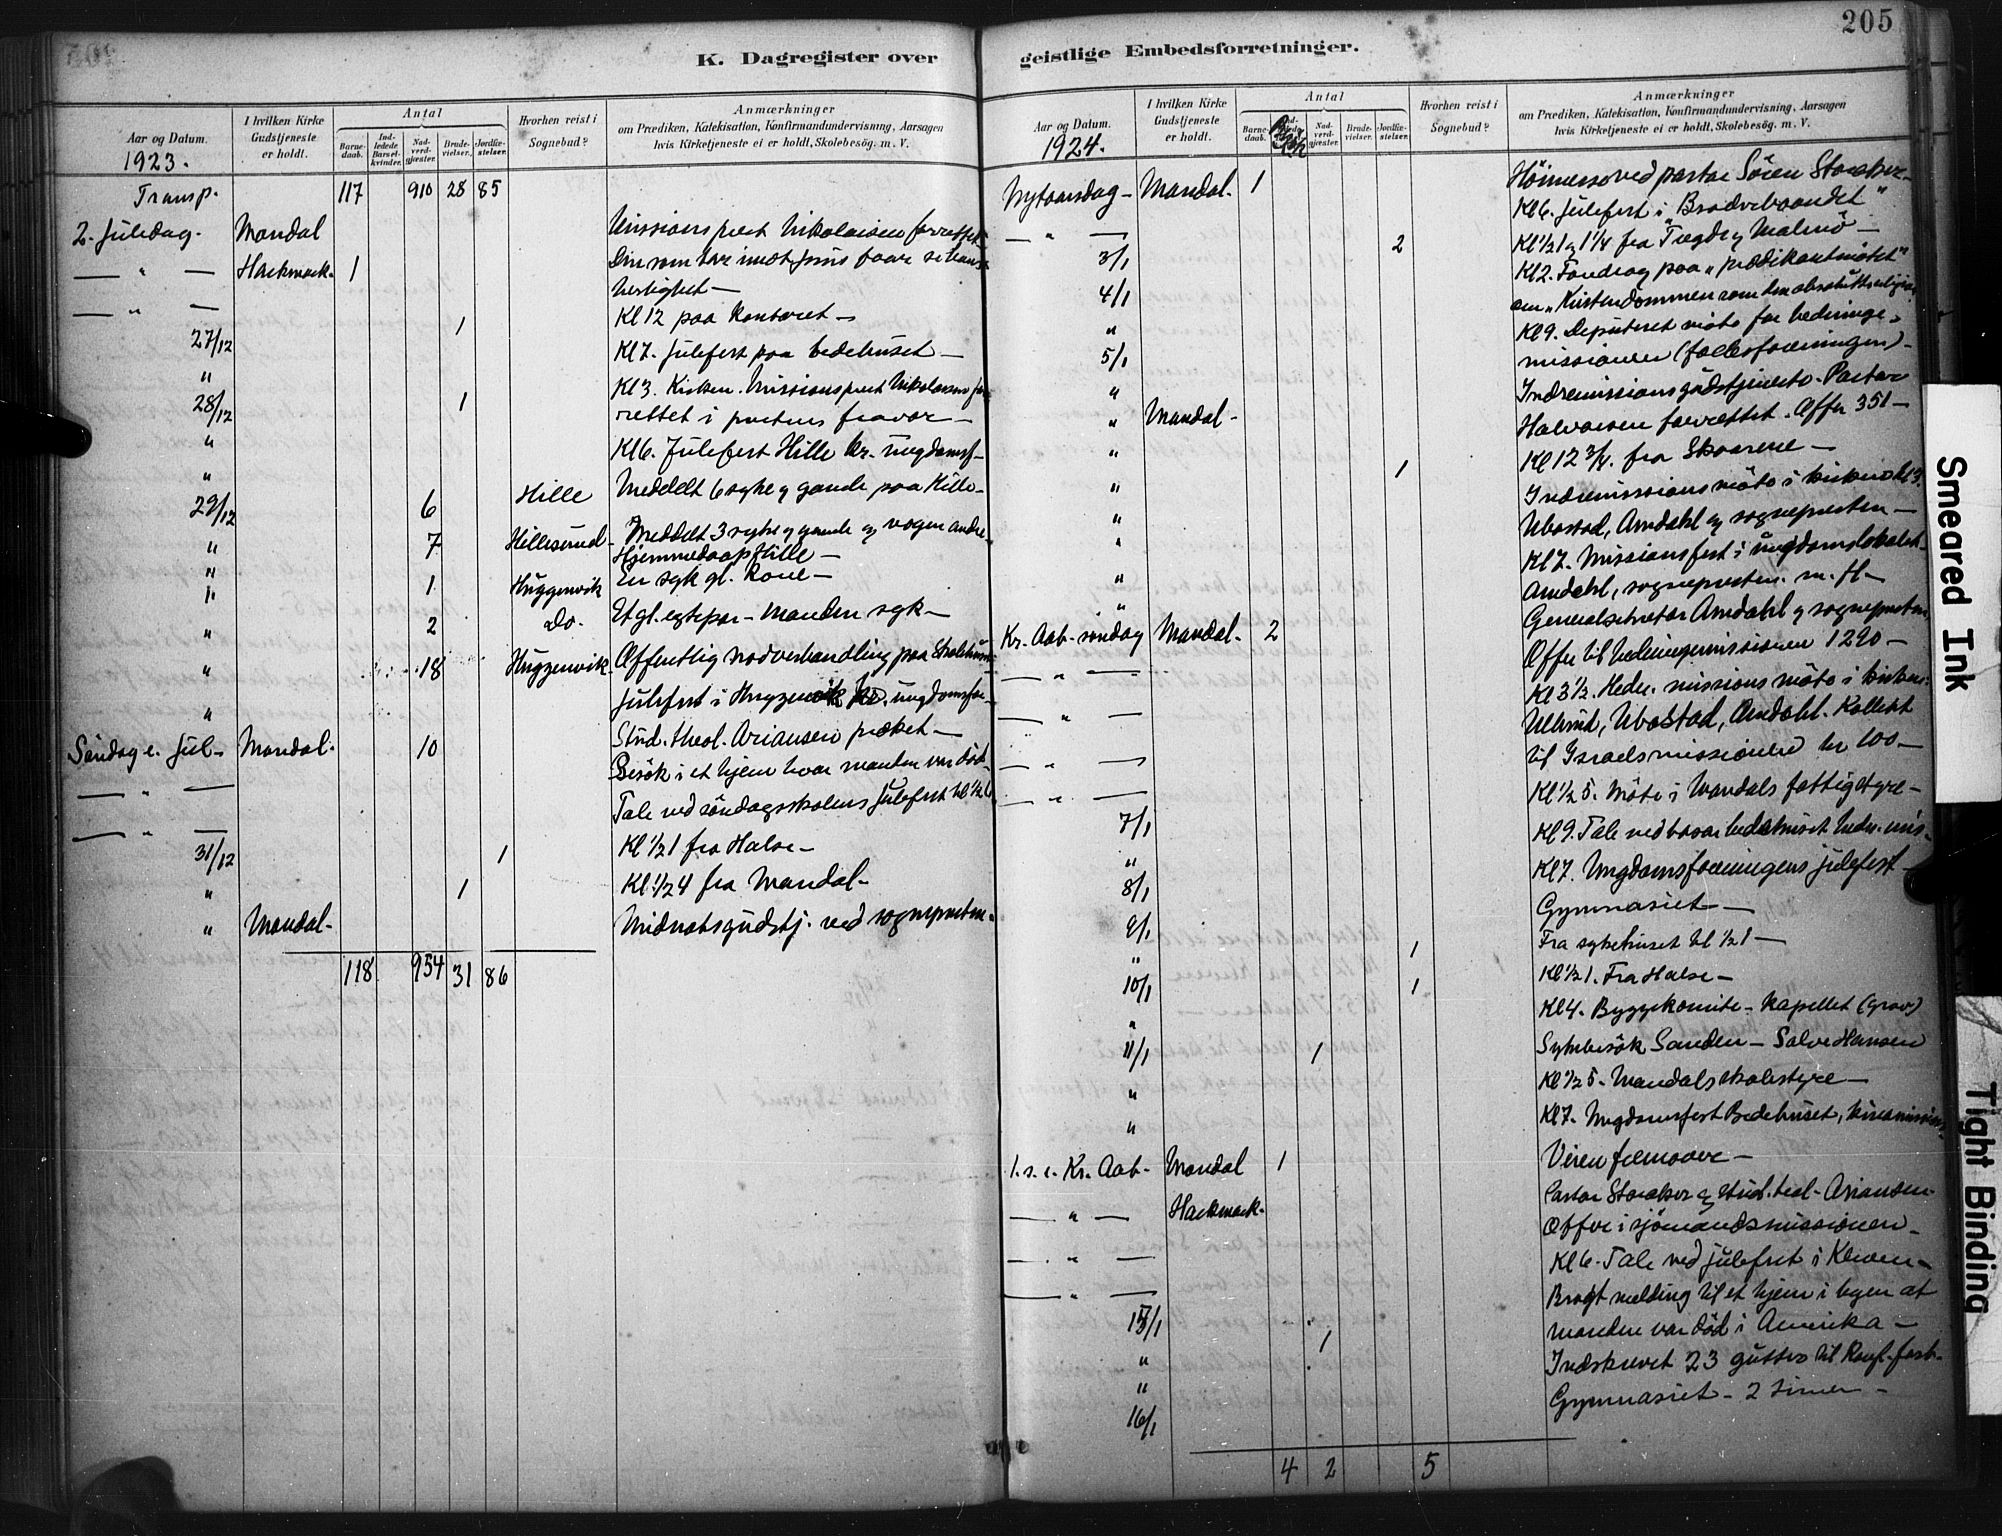 205
K. Dagregister over geistlige Embedsforretninger.
Aar og Datum.
1923.
I hvilken Kirke Gudstjeneste er holdt.
Antal
Barne-daab.
Ind-ledede Barsel-kvinder.
Nad-verd-gjæster.
Brude-vielser.
Jordfæ-stelser.
Hvorhen reist i Sognebud?
Anmærkninger
om Prædiken, Katekisation, Konfirmandundervisning, Aarsagen
hvis Kirketjeneste ei er holdt, Skolebesøg. m. V.
Transp. 117 910 28 85
2. Juledag. Mandal Missionsprest Nikolaisen forrettet
— " — Harkmark. 1 Den som tar imot Jesus faar se hans
herlighet —
— " — 1 Kl 12 paa Kontoret —
27/12 Kl 7. Julefest paa bedehuset —
" Kl 3. Kirken. Missionsprest Nikolaisen for
28/12 1 rettet i prestens fravær —
" Kl 6. Julefest Hille kr. ungdomsf —
" 
29/12 6 Hille Meddelt 6 syke og gamle paa Hille —
" 7 Hillesund — Meddelt 3 syke og gamle og nogen andre.
" Hjemmedaap Hille —
" 1 Huggenvik En syk gl. Kone —
" 2 Do. Et gl. egtepar — Manden syk —
" 18 Huggenvik. Offentlig nadverhandling paa Skolehuset
" Julefest i Huggenvik kr. ungdomsfor —
Søndag e. Jul — Mandal. 10 Stud. theol. Ariansen præket —
— " — Besøk i et hjem hvor manden var død —
— " — Tale ved søndagsskolens Julefest kl 1/2 6
31/12 1 Kl 1/2 1 fra Halse —
" 1 Kl. 1/2 4 fra Mandal —
" Mandal. Midnatsgudstj. ved sognepresten.
118 954 31 86
Aar og Datum.
1924.
I hvilken Kirke Gudstjeneste er holdt.
Antal
Barne-daab.
Nad-verd-gjæster.
Brude-vielser.
Jordfæ-stelser.
Hvorhen reist i Sognebud?
Anmærkninger
om Prædiken, Katekisation, Konfirmandundervisning, Aarsagen
hvis Kirketjeneste ei er holdt, Skolebesøg. m. V.
Nytaarsdag — Mandal. 1 Høimesse ved pastor Søren Storaker —
— " — Kl 6. Julefest i "Brodrebaandet"
3/1 2 Kl 1/2 1 og 1 1/4 fra Tregde og Malmø —
4/1 Kl 2. Foredrag paa "prædikantmøtet"
om "Kristendommen som den absolutte religion
" Kl 9. Deputeret møte for hedninge —
5/1 missionen (fællesforeningen) —
" Indremissionsgudstjeneste. Pastor
" Mandal — Halvorsen forrettet. Offer 351 —
" 1 Kl 12 3/4. fra Skaarene —
" Indremissionsmøte i kirken kl 3.
" Ubostad, Amdahl og sognepresten —
" Kl 7. Missionsfest i ungdomslokalet.
" Amdahl, sognepresten. m. fl —
Kr. Aab. søndag Mandal. 2 Generalsekretær Amdahl og sognepresten.
Offer til hedningemissionen 1290 —
— " — Kl 3 1/2. Hedn. missions møte i kirken:
— " — Ullerud, Ubostad, Amdahl. Kollekt
til Israelsmissionen kr 100 —
— " — Kl 1/2 5. Møte i Mandals fattigstyre —
7/1 Kl 9. Tale ved basar bedehuset hedn. mis.
" Kl 7. Ungdomsforeningens julefest —
8/1 Gymnasiet —
9/1 1 Fra sykehuset kl 1/2 1 —
" 1 Kl 1/2 1. Fra Halse —
10/1 Kl 4. Byggekomite — kapellet (grav)
" 
11/1 1 Sykebesøk Sanden — Salve Hansen
" Kl 1/2 5. Mandals skolestyre —
" Kl 7. Ungdomsfest Bedehuset, kinamission.
1. s. e. Kr. Aab — Mandal 1
— " — Harkmark. Pastor Storaker og stud. teol. Ariansen —
Offer i sjømandsmissionen —
— " — Kl 6. Tale ved julefest i Kleven —
— " — Bragt melding til et hjem i byen at
15/1 manden var død i Amerika —
" 1 Indskrevet 23 gutter til Konf. forb.
"
16/1 Gymnasiet — 2 timer —
4 2 5
Smeared Ink
Tight Binding